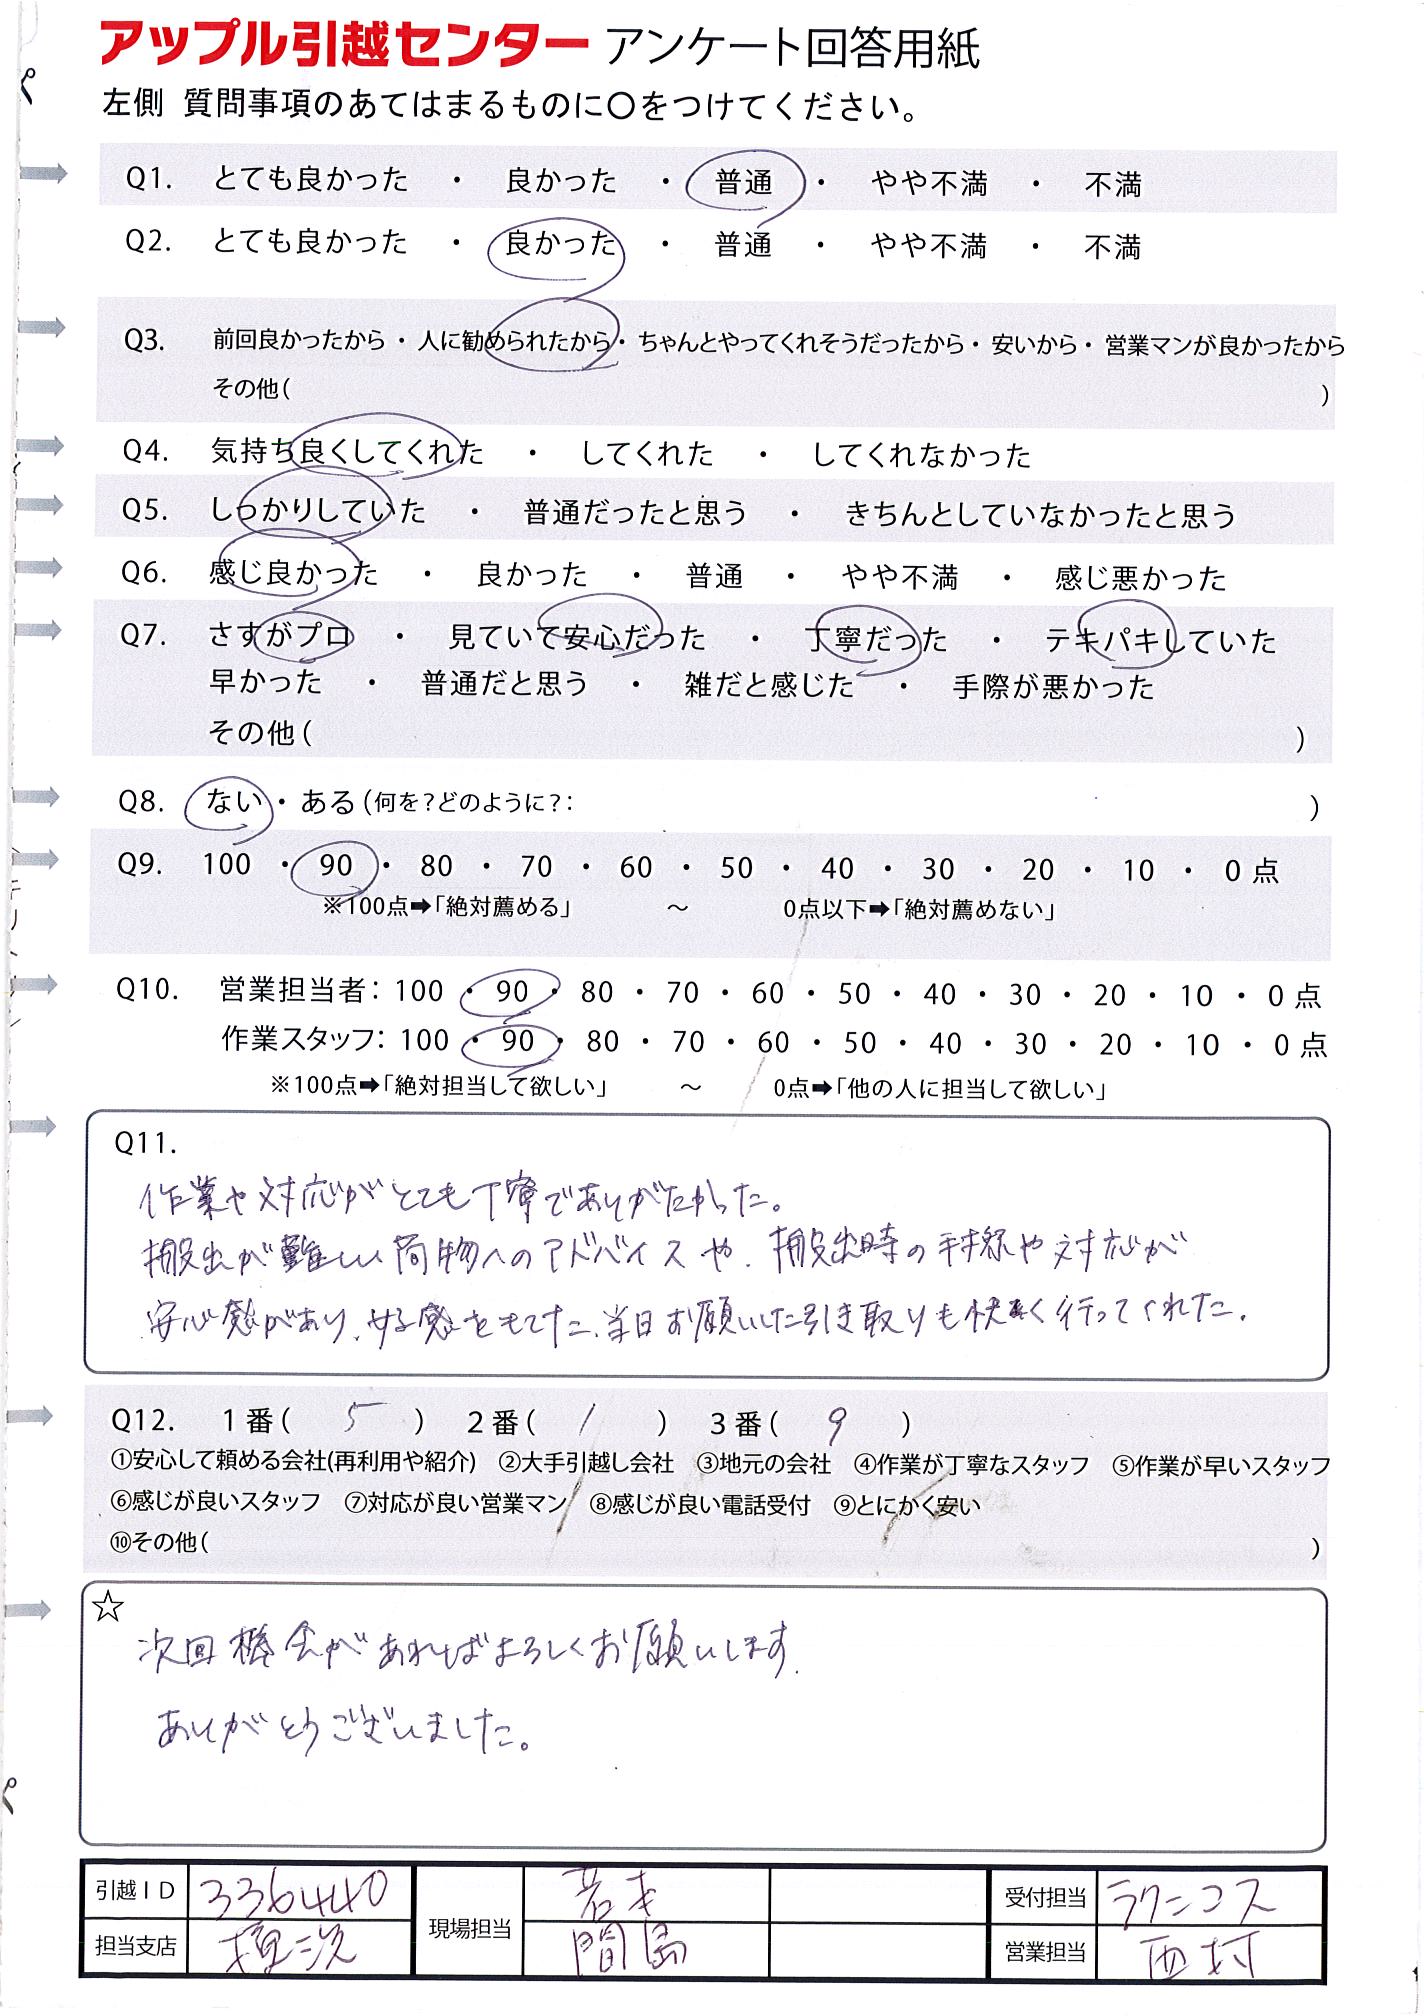 アップル引越センター アンケート回答用紙
左側 質問事項のあてはまるものに〇をつけてください。
Q1. とても良かった ・ 良かった ・ 普通 ・ やや不満 ・ 不満
Q2. とても良かった ・ 良かった ・ 普通 ・ やや不満 ・ 不満
Q3. 前回良かったから・人に勧められたから・ちゃんとやってくれそうだったから・安いから・営業マンが良かったから
その他( )
Q4. 気持ち良くしてくれた ・ してくれた ・ してくれなかった
Q5. しっかりしていた ・ 普通だったと思う ・ きちんとしていなかったと思う
Q6. 感じ良かった ・ 良かった ・ 普通 ・ やや不満 ・ 感じ悪かった
Q7. さすがプロ ・ 見ていて安心だった ・ 丁寧だった ・ テキパキしていた
早かった ・ 普通だと思う ・ 雑だと感じた ・ 手際が悪かった
その他( )
Q8. ない・ある(何を?どのように?: )
Q9. 100 ・ 90 ・ 80 ・ 70 ・ 60 ・ 50 ・ 40 ・ 30 ・ 20 ・ 10 ・ 0点
※100点➡「絶対薦める」 ～ 0点以下➡「絶対薦めない」
Q10. 営業担当者: 100 ・ 90 ・ 80 ・ 70 ・ 60 ・ 50 ・ 40 ・ 30 ・ 20 ・ 10 ・ 0点
作業スタッフ: 100 ・ 90 ・ 80 ・ 70 ・ 60 ・ 50 ・ 40 ・ 30 ・ 20 ・ 10 ・ 0点
※100点➡「絶対担当して欲しい」 ～ 0点➡「他の人に担当して欲しい」
Q11.
作業や対応がとても丁寧でありがたかった。
搬出が難しい荷物へのアドバイスや、搬出時の手際や対応が
安心感があり、好感をもてた。当日お願いした引き取りも快く行ってくれた。
Q12. 1番( 5 ) 2番( 1 ) 3番( 9 )
①安心して頼める会社(再利用や紹介) ②大手引越し会社 ③地元の会社 ④作業が丁寧なスタッフ ⑤作業が早いスタッフ
⑥感じが良いスタッフ ⑦対応が良い営業マン ⑧感じが良い電話受付 ⑨とにかく安い
⑩その他( )
☆
次回機会があればよろしくお願いします。
ありがとうございました。
引越ID 336440 現場担当 若本 受付担当 ラクーコス
担当支店 横浜 間島 営業担当 西村